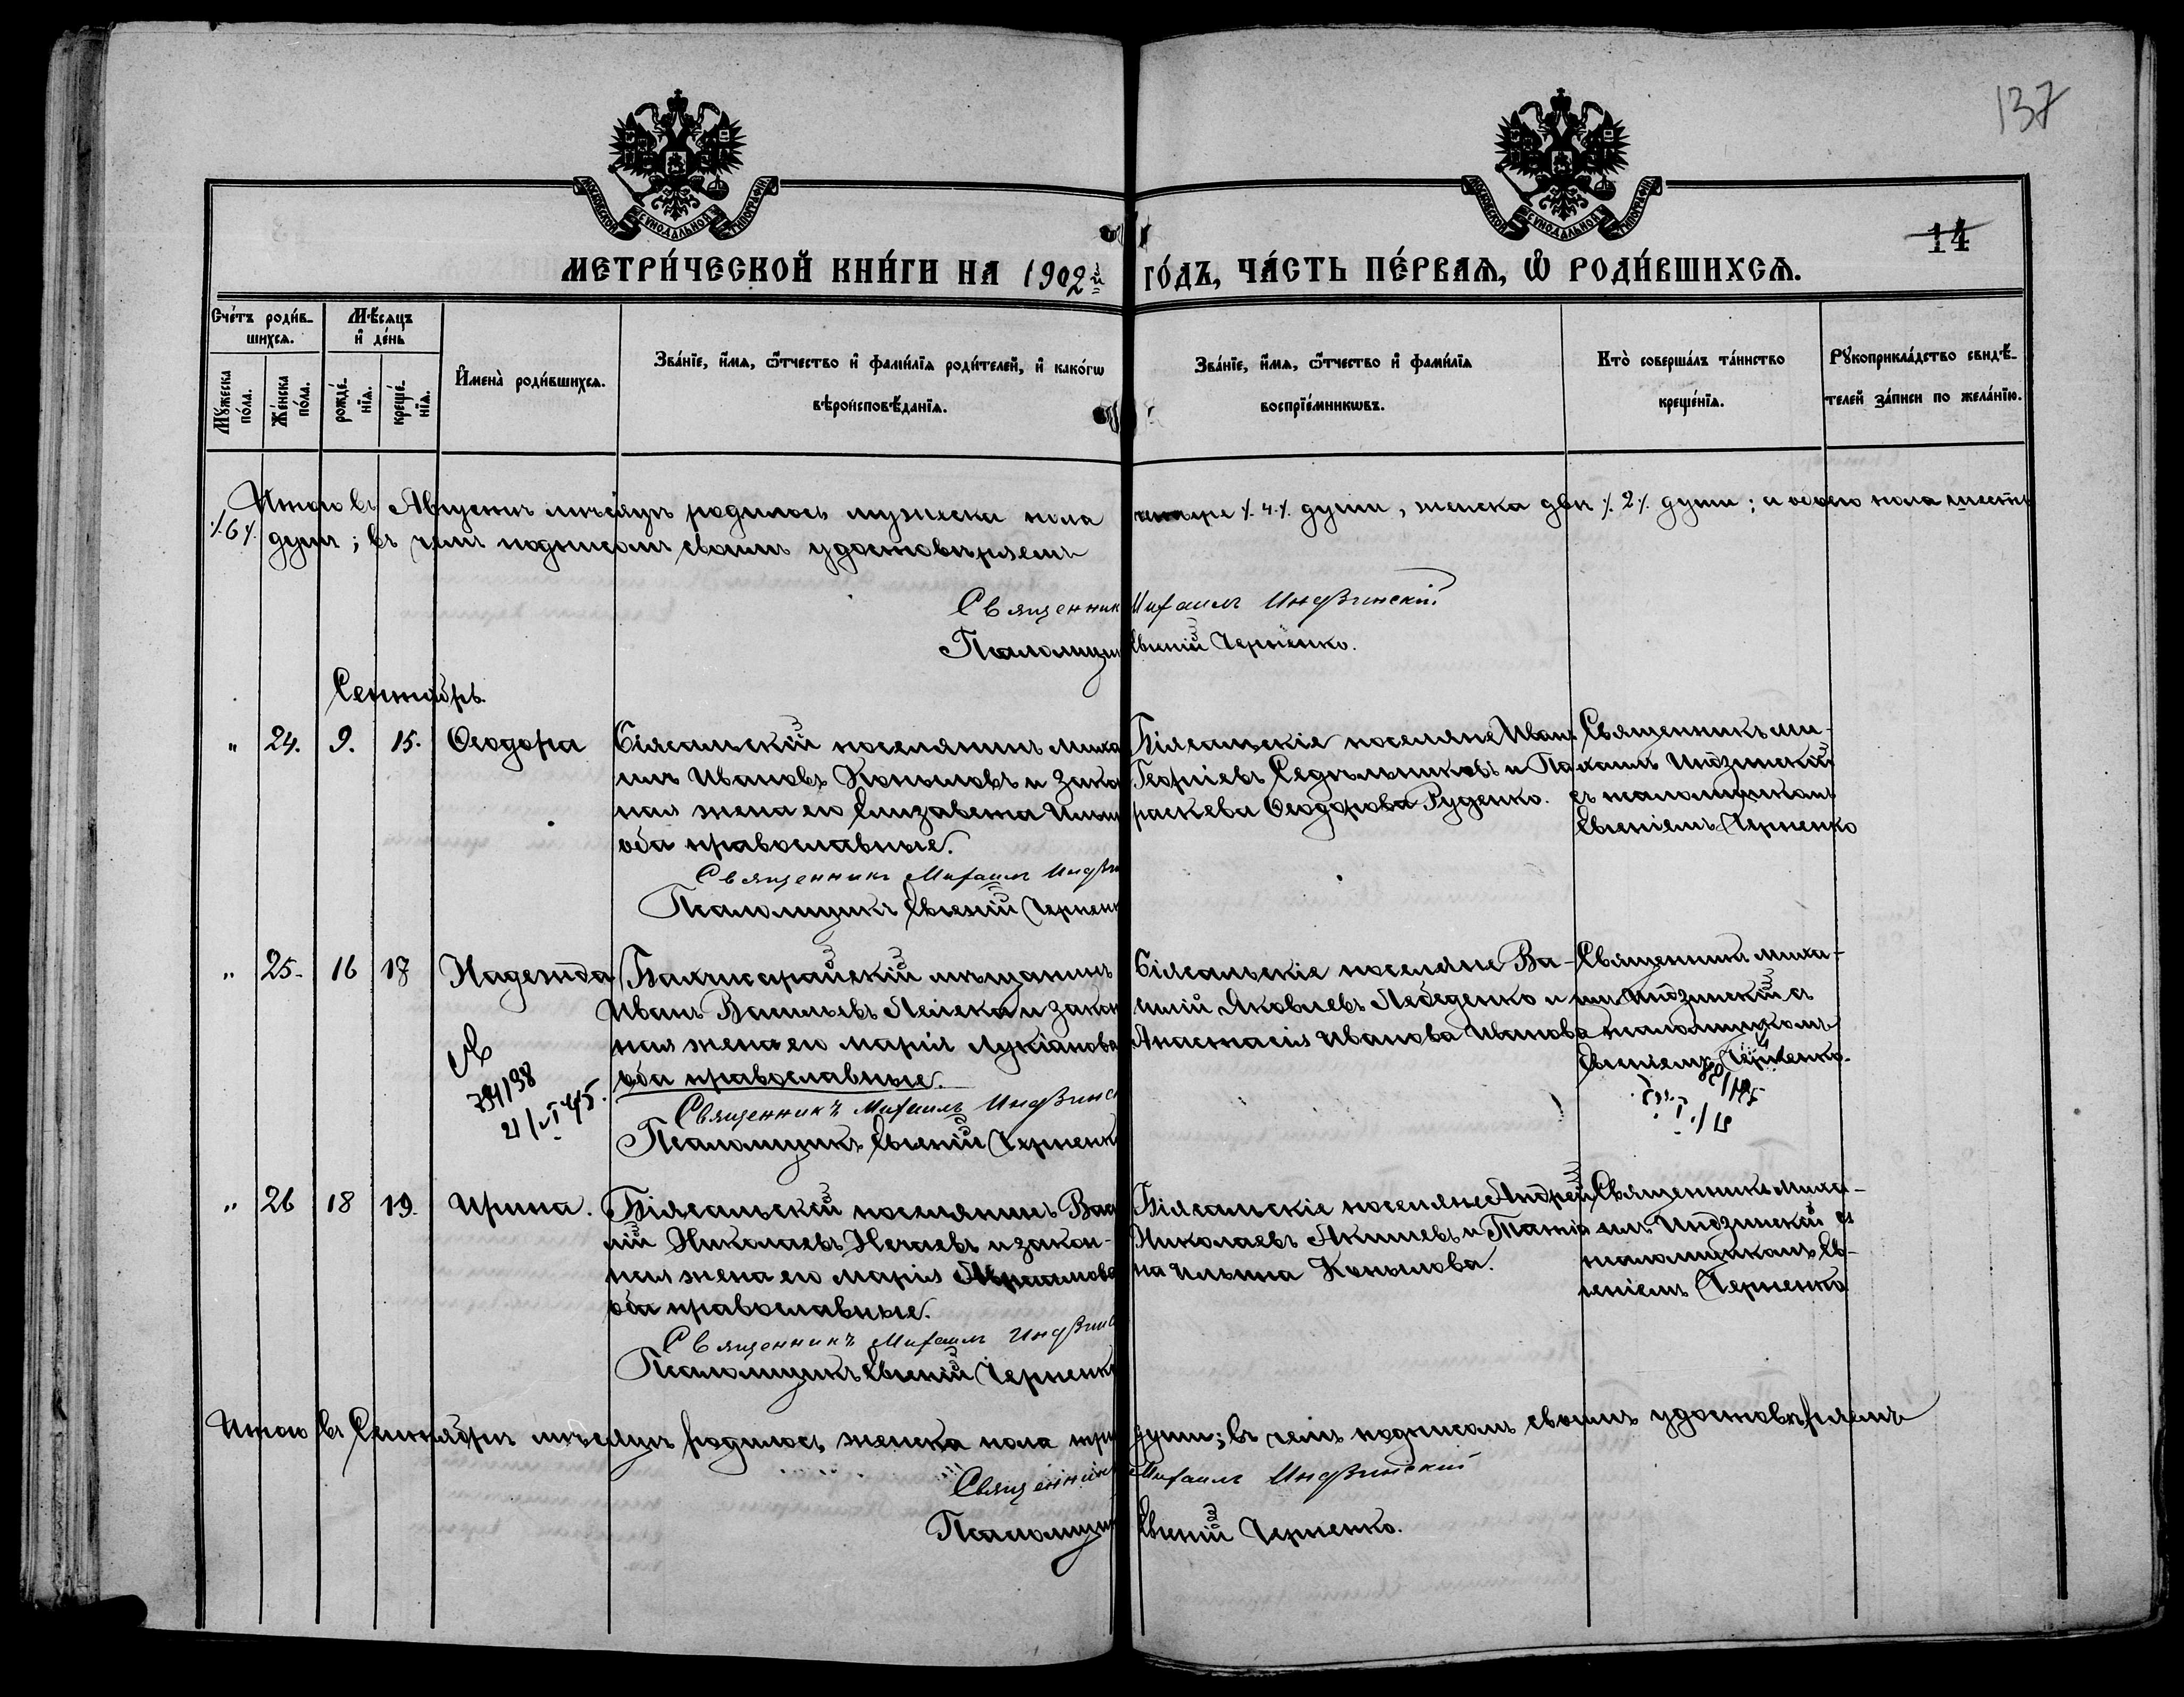 137
МОСКОВСКОЙ СѴНОДАЛЬНОЙ ТИПОГРАФІИ
МОСКОВСКОЙ СѴНОДАЛЬНОЙ ТИПОГРАФІИ
14
МЕТРИ́ЧЕСКОЙ КНИ́ГИ НА 1902й ГО́ДЪ, ЧА́СТЬ ПЕ́РВАЯ, Ѡ҆ РОДИ́ВШИХСЯ.
Сче́тъ роди́в-
шихся.
Мѣсяцъ
и҆ де́нь
Мꙋ́жеска по́ла.
Же́нска по́ла.
рожде́-нїя.
креще́-нїя.
И҆мена̀ роди́вшихся.
Зва́нїе, и҆́мя, ѻ҆́тчество и҆ фами́лїя роди́телей, и҆ како́гѡ
вѣроисповѣ́данїя.
Зва́нїе, и҆́мя, ѻ҆́тчество и҆ фами́лїя
воспрїе́мникѡвъ.
Кто̀ соверша́лъ та́инство
креще́нїя.
Рꙋкоприкла́дство свидѣ́-
телей за́писи по жела́нїю.
Итого въ Августѣ мѣсяцѣ родилось мужеска пола четыре ./.4./. души, женска двѣ ./.2./. души; а обоего пола шесть
./.6./. душъ; въ чемъ подписомъ своимъ удостовѣряемъ
Священник Михаилъ Индзинскій
Псаломщик Евгеній Черненко.
Сентябрь.
" 24. 9. 15. Ѳеодора
Біясальскій поселянинъ Миха
илъ Ивановъ Копыловъ и закон
ная жена его Елизавета Ильин
оба православные.
Священникъ Михаилъ Индзи
Псаломщикъ Евгеній Черненк
Біясальскіе поселяне Иванъ
Георгіевъ Седѣльниковъ и Па
раскева Ѳеодорова Руденко.
Священникъ Ми-
хаилъ Индзинскій
съ псаломщикомъ
Евгеніемъ Черненко
" 25. 16 17 Надежда
Бахчисарайскій мѣщанинъ
Иванъ Васильевъ Лелека и закон
ная жена его Марія Лукіанова
оба православные.
Священникъ Михаилъ Индзинс
Псаломщикъ Евгеній Черненк
Біясальскіе поселяне Ва-
силій Яковлевъ Лебеденко и
Анастасія Иванова Иванова
Священникъ Миха-
илъ Индзинскій съ
псаломщикомъ
Евгеніемъ Черненко.
21/VI 45.
" 26 18 19. Ирина.
Біясальскій поселянинъ Васи
лій Николаевъ Нечаевъ и закон-
ная жена его Марія Авраамова
оба православные.
Священникъ Михаилъ Индзинс
Псаломщикъ Евгеній Черненк
Біясальскіе поселяне Андрей
Николаевъ Акишевъ и Татія
на Ильина Копылова.
Священникъ Миха-
илъ Индзинскій съ
псаломщикомъ Ев-
геніемъ Черненко
Итого въ Сентябрѣ мѣсяцѣ родилось женска пола три души; въ чемъ подписомъ своимъ удостовѣряемъ
Священникъ Михаилъ Индзинскій
Псаломщик Евгеній Черненко.